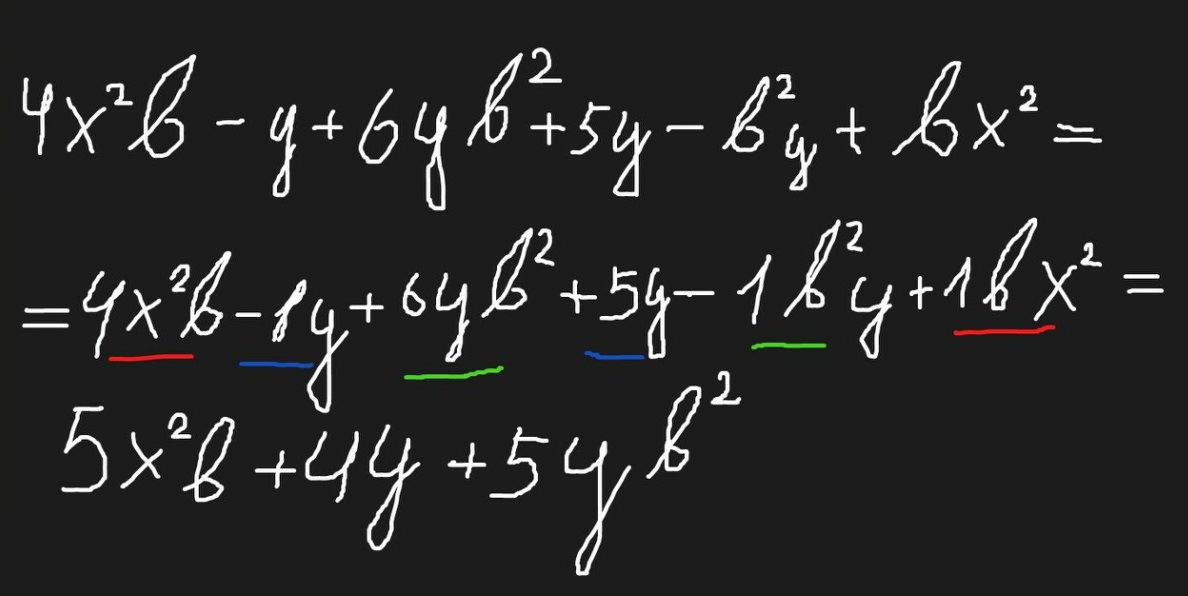 4x²b - y + 6yb² + 5y - b²y + bx² =
= 4x²b - 1y + 6yb² + 5y - 1b²y + 1bx² =
5x²b + 4y + 5yb²